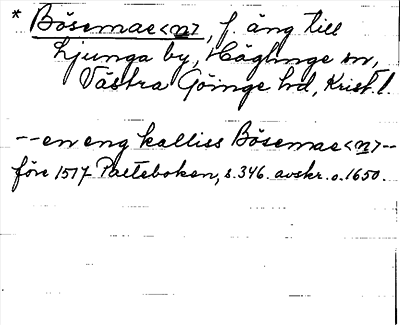 * Bösemae<n>, f. äng till
Ljunga by, Häglinge sn,
Västra Göinge hd, Krist. l.
--en eng kalliss Bösemae<n>--
före 1517 Paeteboken, s. 346. avskr. o. 1650.